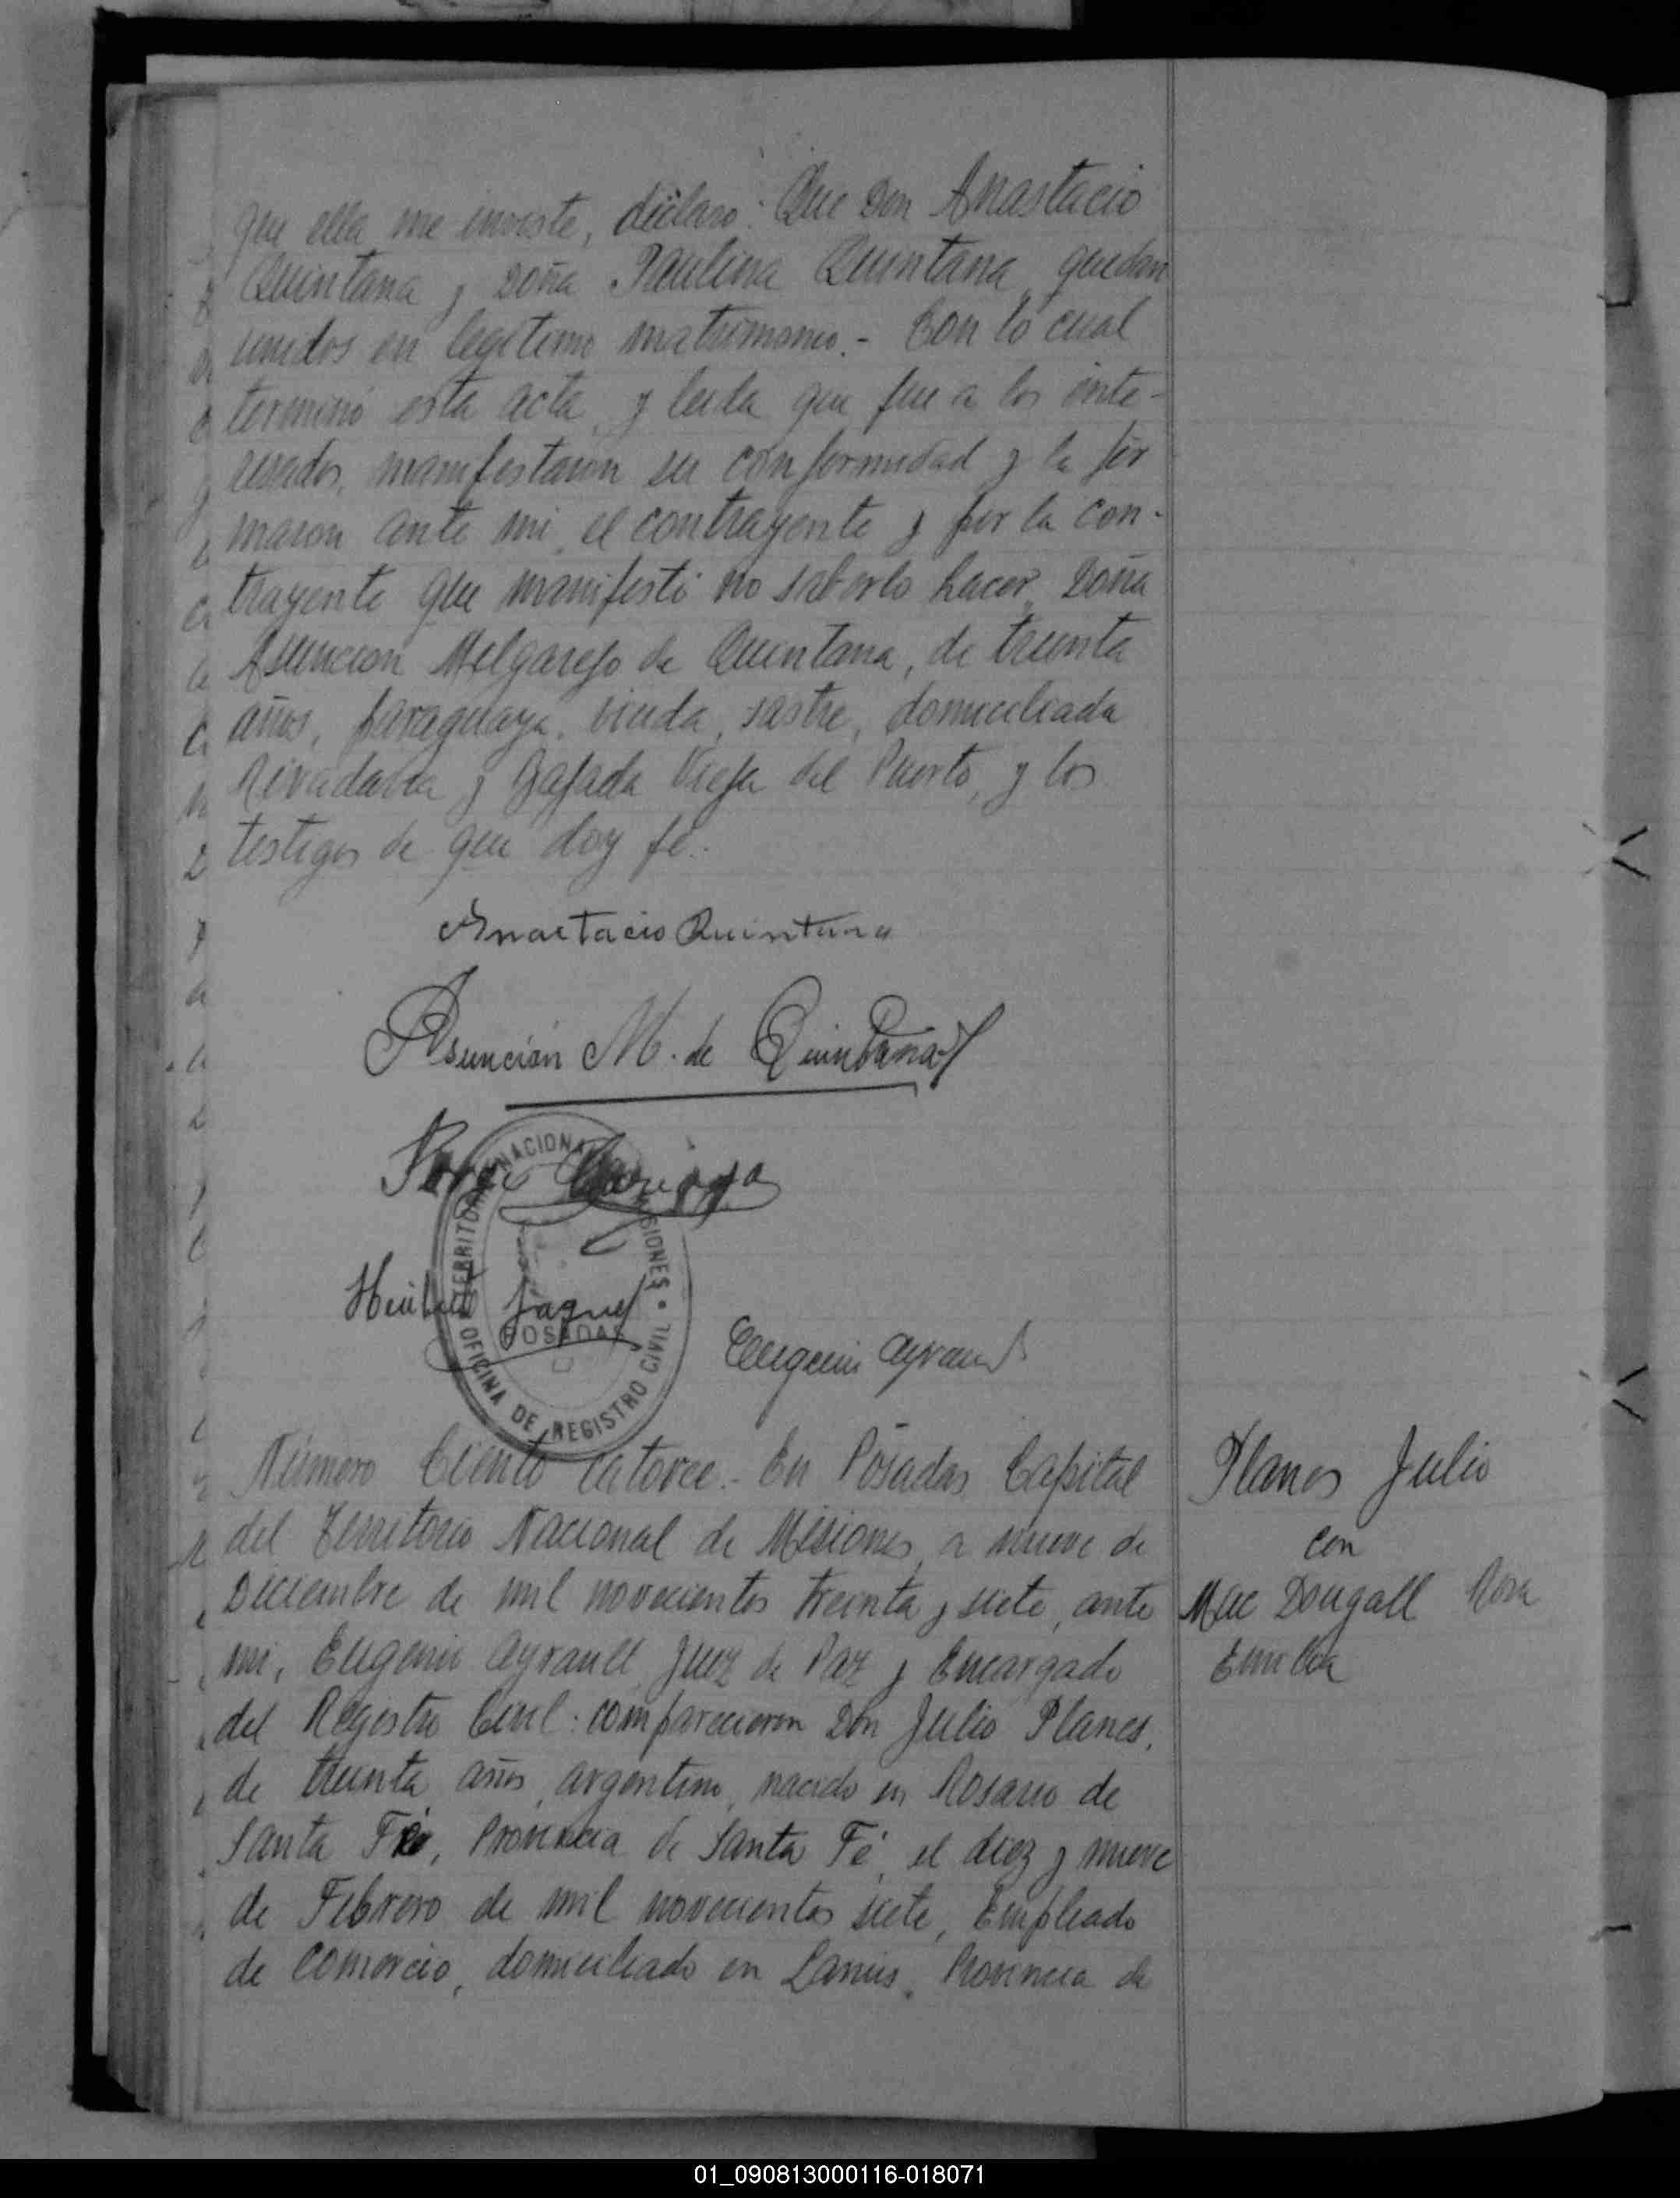 que ella me inviste, declaro: Que Don Anastacio
Quintana y Doña Paulina Quintana, quedan
unidos en legitimo matrimonio.- Con lo cual
terminó esta acta, y leida que fue a los inte-
resados, manifestaron su conformidad y la fir
maron ante mi, el contrayente y por la con-
trayente que manifestó no saberlo hacer, Doña
Asuncion Melgarejo de Quintana, de treinta
años, paraguaya, viuda, sastre, domiciliada
Rivadavia y Bajada Vieja del Puerto, y los
testigos de que doy fé.-
Anastacio Quintana
Asunción M. de Quintana
TERRITORIO NACIONAL MISIONES
POSADAS
OFICINA DE REGISTRO CIVIL
Eugenio Ayrault
Número Ciento catorce.- En Posadas, Capital
del Territorio Nacional de Misiones, a nueve de
Diciembre de mil novecientos treinta y siete, ante
mi, Eugenio Ayrault, Juez de Paz y Encargado
del Registro Civil: comparecieron Don Julio Planes,
de treinta años, argentino, nacido en Rosario de
Santa Fé, Provincia de Santa Fé, el diez y nueve
de Febrero de mil novecientos siete, Empleado
de Comercio, domiciliado en Lanús, Provincia de
Planes Julio
con
Mac Dougall Rosa
Emilia
01_090813000116-018071